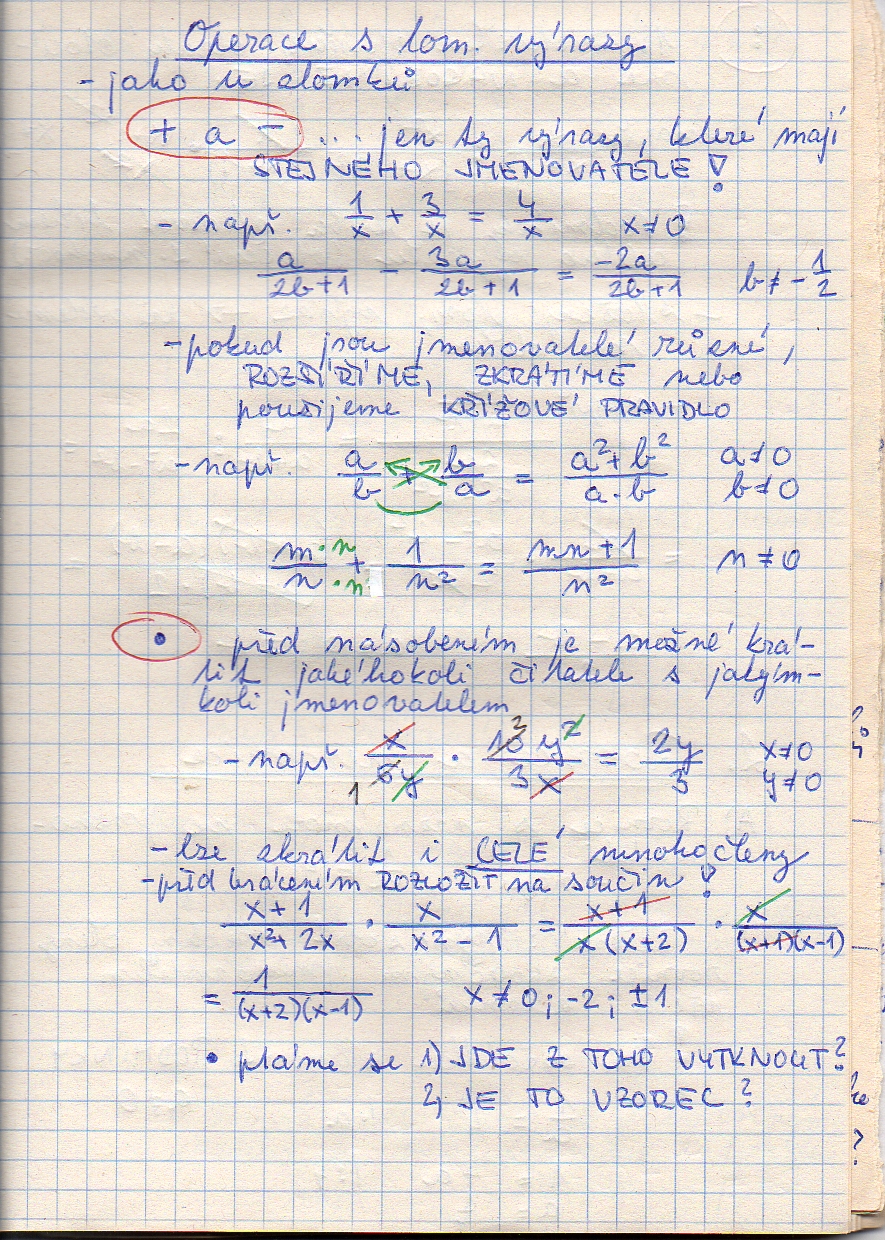 Operace s lom. výrazy
- jako u zlomků
+ a - ... jen ty výrazy, které mají
STEJNÉHO JMENOVATELE!
- např. 1/x + 3/x = 4/x x≠0
a/2b+1 - 3a/2b+1 = -2a/2b+1 b≠-1/2
- pokud jsou jmenovatelé různé,
ROZŠÍŘÍME, ZKRÁTÍME nebo
použijeme KŘÍŽOVÉ PRAVIDLO
- např. a/b + b/a = a²+b²/a·b a≠0 b≠0
m·n/n·n + 1/n² = mn+1/n² n≠0
• před násobením je možné krá-
tit jakéhokoli čitatele s jakým-
koli jmenovatelem
- např. x/5y · 10y²/3x = 2y/3 x≠0 y≠0
2
1
- lze zkrátit i CELÉ mnohočleny
- před krácením ROZLOŽIT na součin!
x+1/x²+2x · x/x²-1 = x+1/x(x+2) · x/(x+1)(x-1)
= 1/(x+2)(x-1) x≠0; -2; ±1
• ptáme se 1) JDE Z TOHO VYTKNOUT?
2) JE TO VZOREC?